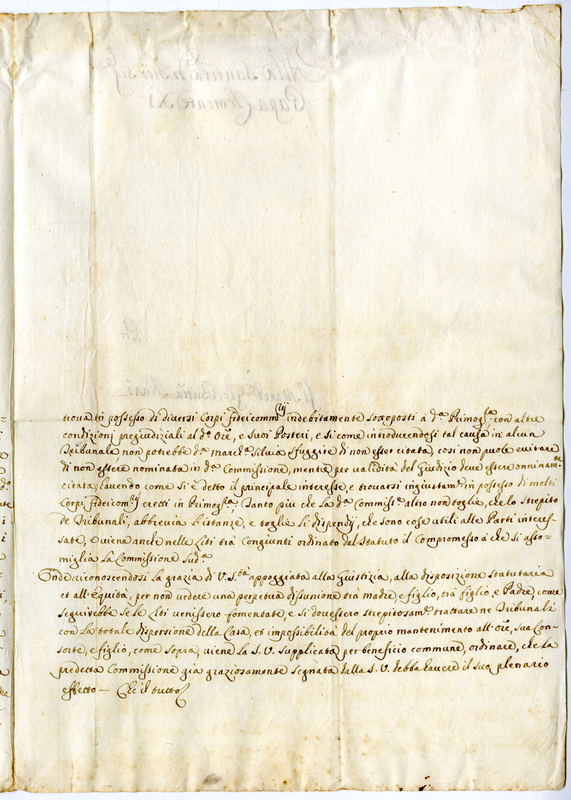 trova in possesso di diversi Corpi fideicomm.rij indebitamente sottoposti à d.a Primog.ra con altre
condizioni pregiudiziali al d.o Ore, e suoi Posteri, e si come introducendosi tal causa in alcun
Tribunale non potrebbe d.a March.a Silvia sfuggire di non esser citata, così non puole evitare
di non essere nominata in d.a Commissione, mentre per validità del Giudizio deve essere onninam.te
citata, havendo come si è detto il principale interesse, e trovarsi ingiustam.te in possesso di molti
Corpi fideicom.rij eretti in Primog.ra; Tanto più che la d.a Commiss.e altro non toglie, che lo strepito
de Tribunali, abbrevia l'istanze, e toglie li dispendij, che sono cose utili alle Parti interes-
sate, e viene anche nelle liti trà Congiunti ordinato dal Statuto il Compromesso à che si asso-
miglia la Commissione sud.a
Onde riconoscendosi la grazia di V. S.tà appoggiata alla Giustizia, alla disposizione statutaria
et all'Equità, per non vedere una perpetua disunione trà madre, e figlio, trà figlio, e Padre come
seguirebbe se le liti venissero fomentate, e si dovessero strepitosam.te trattare ne Tribunali
con la totale dispersione della Casa, et impossibilità del proprio mantenimento all'Ore, sua Con-
sorte, e figlio, come sopra, viene la S. V. supplicata per beneficio commune, ordinare, che la
predetta Commissione già graziosamente segnata dalla S. V. debba havere il suo plenario
effetto — Che il tutto